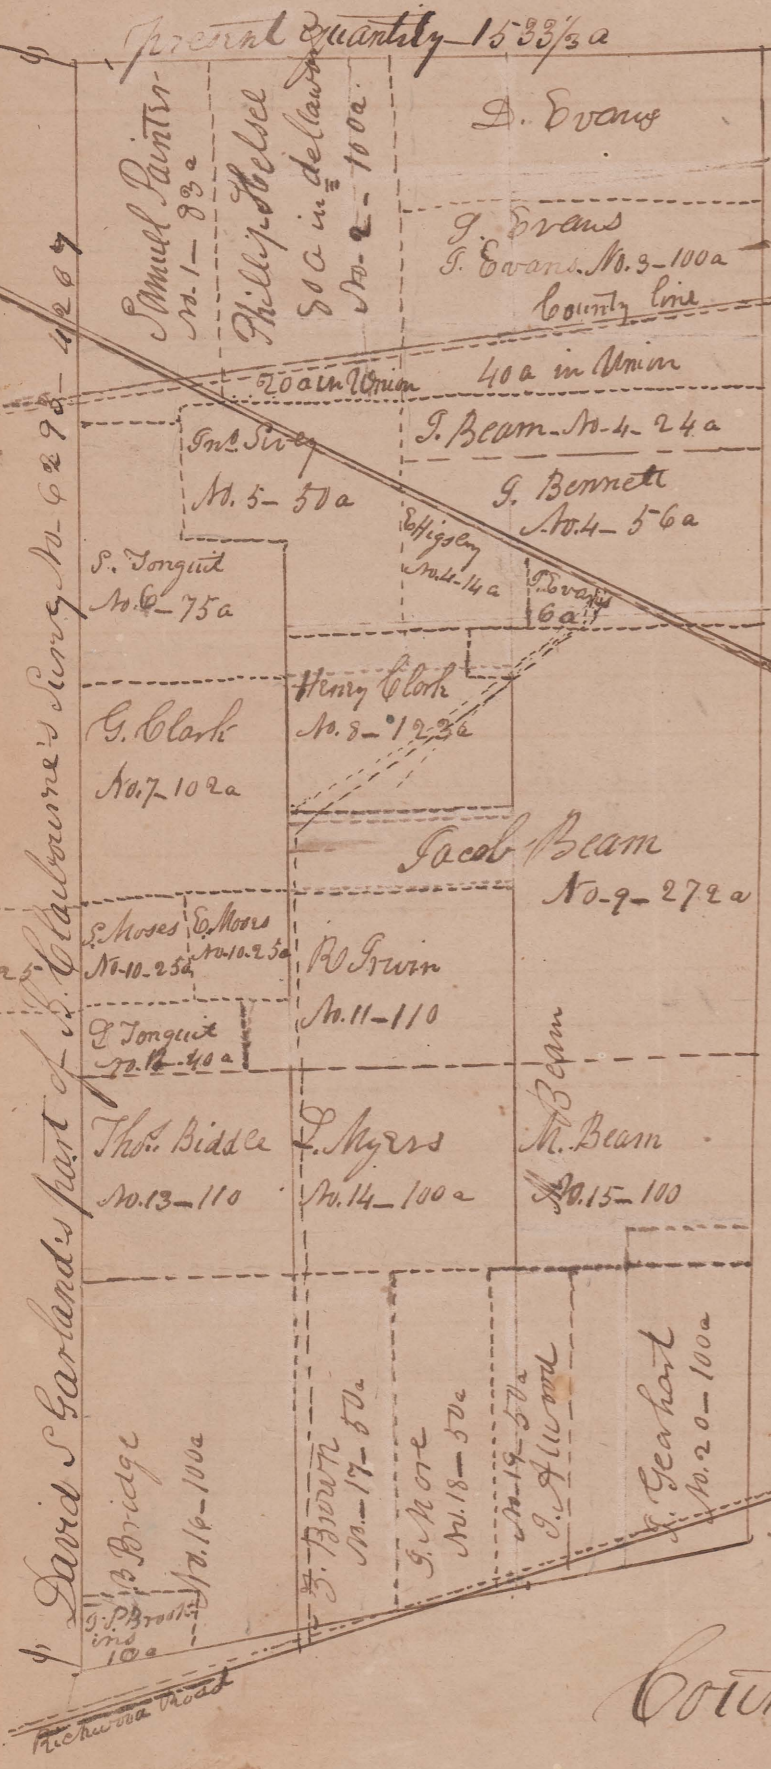 present Quantity - 1533 1/3 a
David S Garland's part of B. Claibourne's Survey No- 6293 - 4267
Samuel Painter
No. 1 - 83a
Phillip Helsel
80a in dellawar
No- 2 - 100a
D. Evans
J. Evans
T. Evans. No. 3 - 100a
County line
20a in Union
40a in Union
J. Beam - No - 4 - 24a
Jno.
No. 5 - 50a
J. Bennett
No. 4 - 56a
E Higsley
No. 4 - 14a
J. Evans
6a
S. Tonguit
No. 6 - 75a
Henry Clark
No. 8 - 123a
G. Clark
No. 7 - 102a
Jacob Beam
No - 9 - 272a
S. Moses
No - 10 - 25a
E. Moses
No - 10. 25a
25
R Irwin
No. 11 - 110
Tonguit
No. 12 - 40a
M Beam
Thos. Biddle
No. 13 - 110
Myers
No. 14 - 100a
M. Beam
No. 15 - 100
B. Bridge
No. 16 - 100a
Brown
No. - 17 - 50a
G. More
No. 18 - 50a
No - 19 - 50a
J. Atwood
Gearhart
No. 20 - 100a
J. P. Brook
ins
10a
Richwood Road
Coun